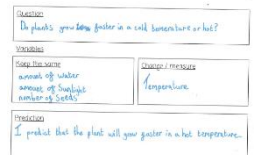 Question
Do plants grow faster in a cold temerature or hot?
Variables
Keep the same
amount of water
amount of Sunlight
number of Seeds
Change / measure
Temperature
Prediction
I predict that the plant will grow faster in a hot temperature.